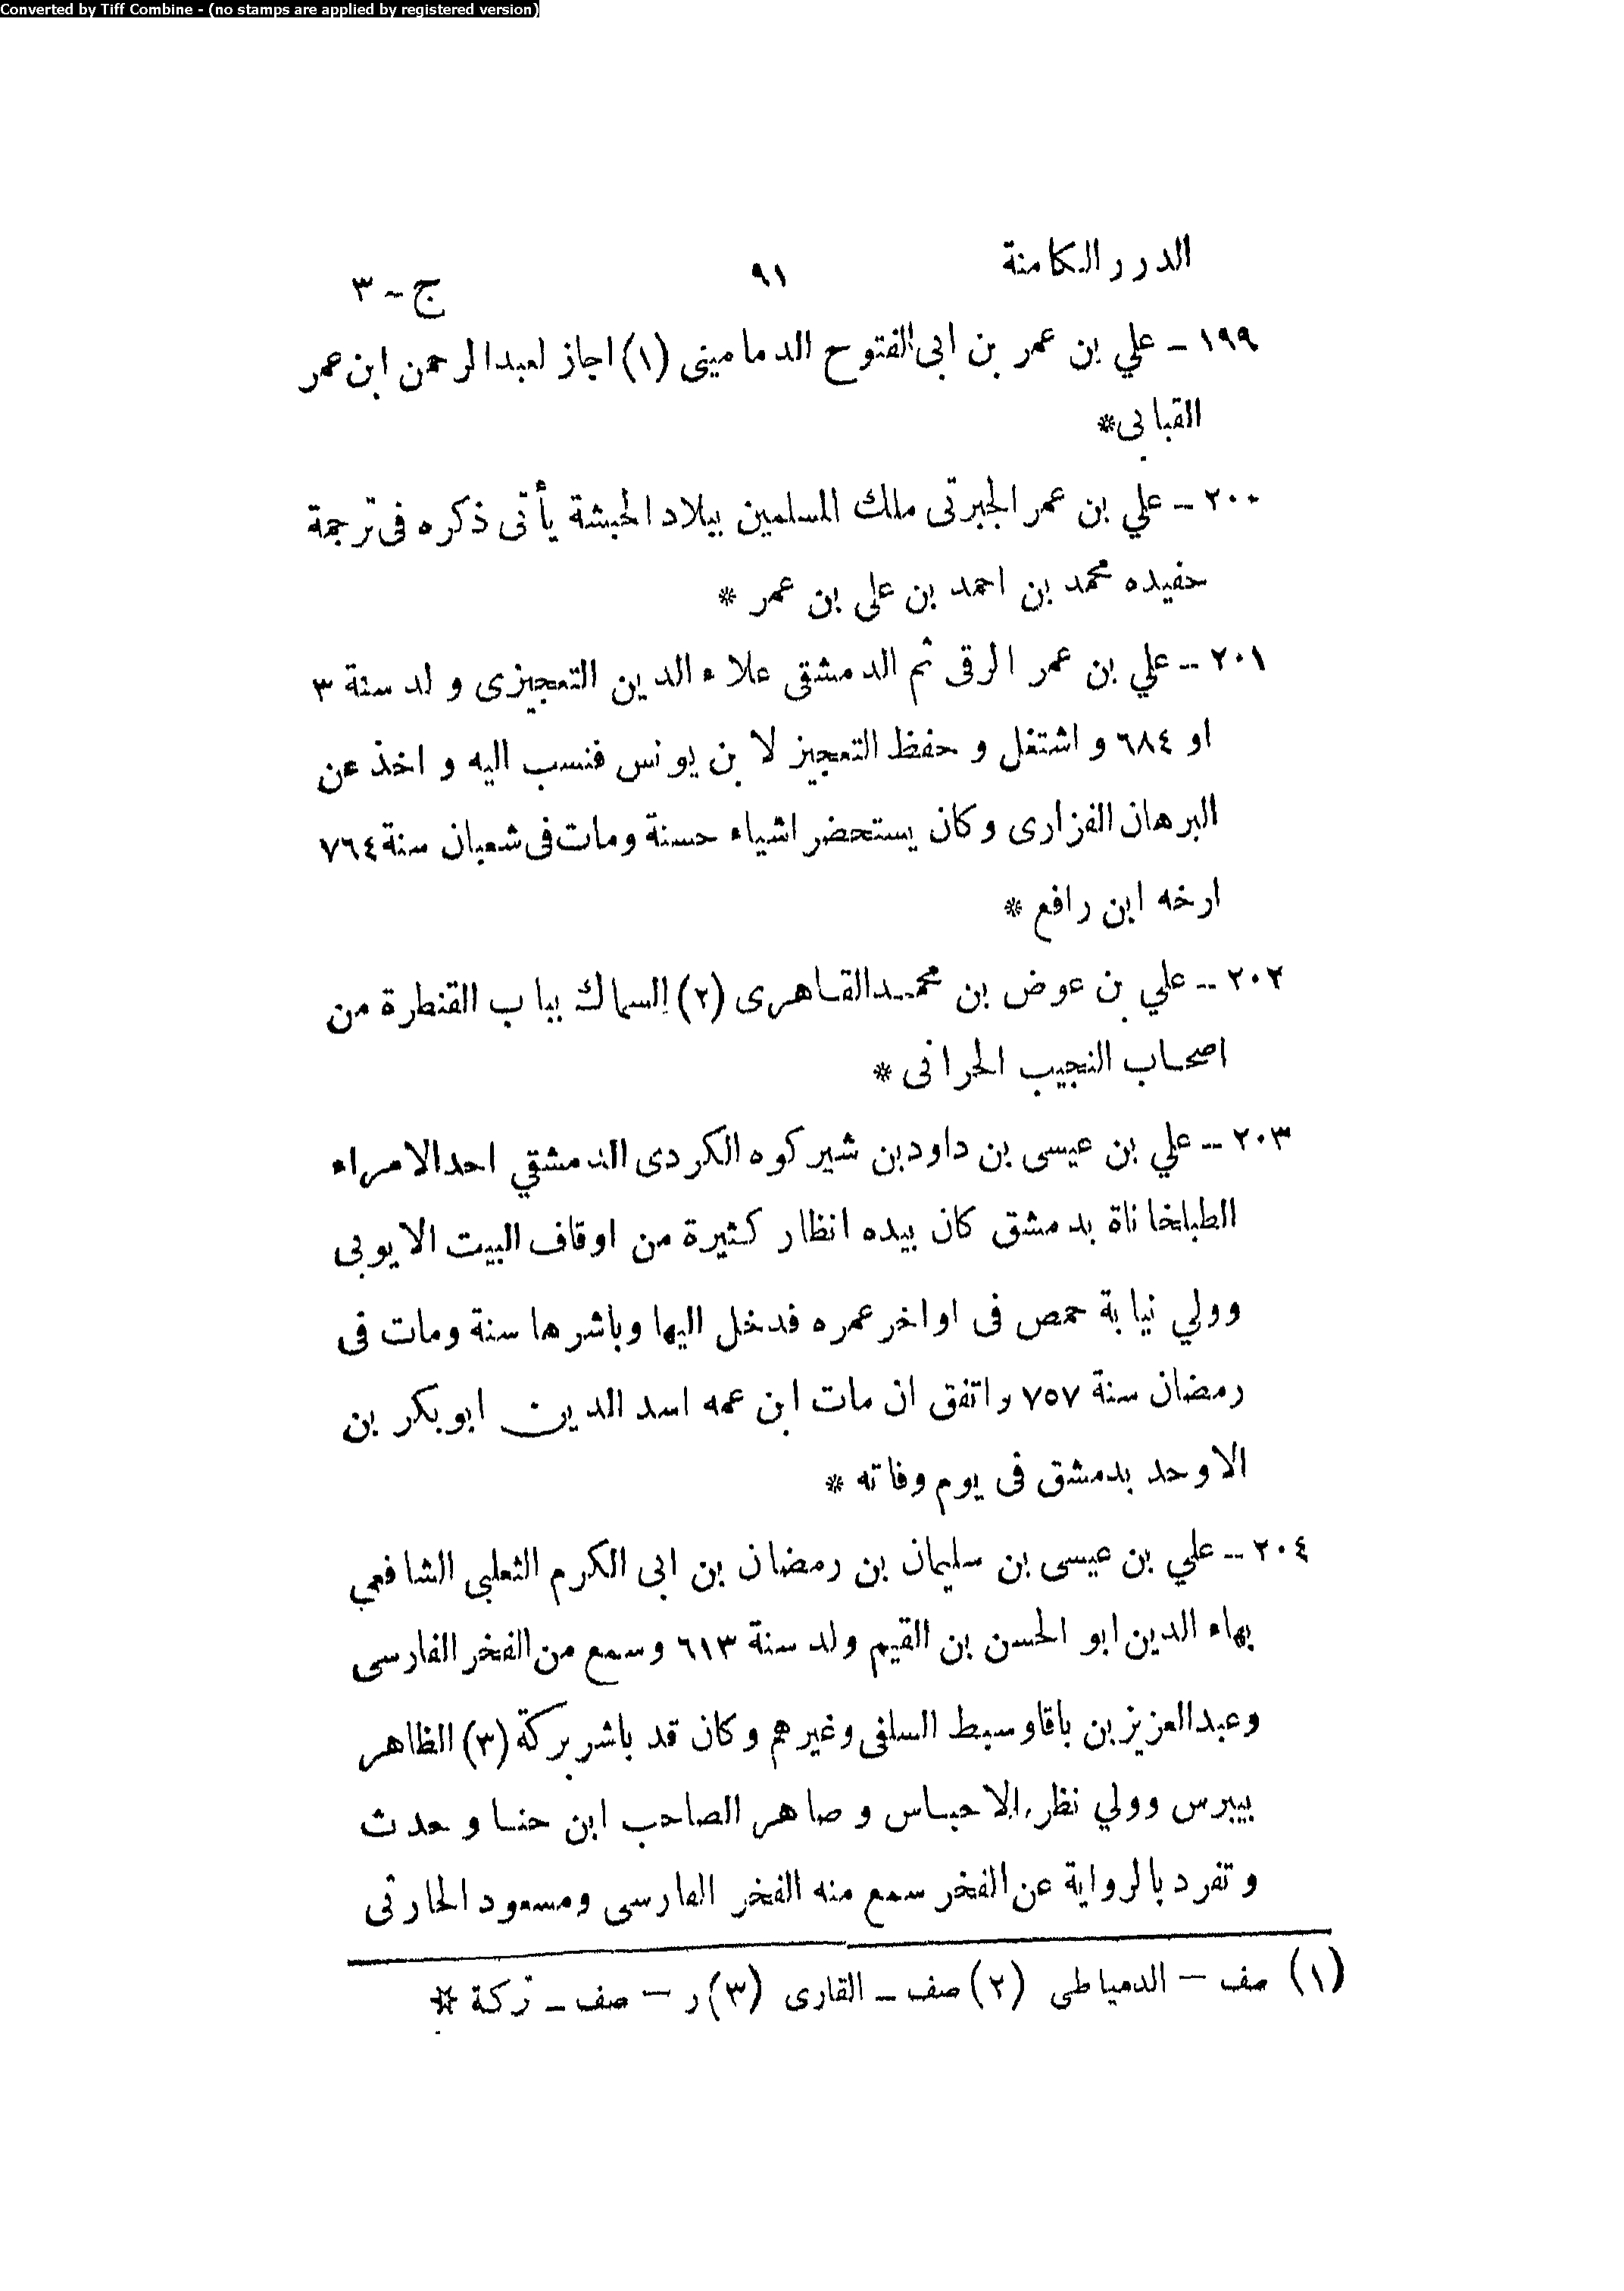 Converted by Tiff Combine - (no stamps are applied by registered version)
الدرر الكامنة ٩١ ج - ٣
١٩٩ - علي بن عمر بن ابى الفتوح الدمامينى (١) اجاز لعبد الرحمن ابن عمر
القبابى *
٢٠٠ - علي بن عمر الجبرتى ملك المسلمين ببلاد الحبشة يأتى ذكره فى ترجمة
حفيده محمد بن احمد بن على بن عمر *
٢٠١ - علي بن عمر الرقى ثم الدمشقى علاء الدين التعجيزى ولد سنة ٣
او ٦٨٤ واشتغل وحفظ التعجيز لابن يونس فنسب اليه واخذ عن
البرهان الفزارى وكان يستحضر اشياء حسنة ومات فى شعبان سنة ٧٦٤
ارخه ابن رافع *
٢٠٢ - علي بن عوض بن محمد القاهرى (٢) السماك بباب القنطرة من
اصحاب النجيب الحرانى *
٢٠٣ - علي بن عيسى بن داود بن شيركوه الكردى الدمشقي احد الامراء
الطبلخاناة بدمشق كان بيده انظار كثيرة من اوقاف البيت الايوبى
وولي نيابة حمص فى اواخر عمره فدخل اليها وباشرها سنة ومات فى
رمضان سنة ٧٥٧ واتفق ان مات ابن عمه اسد الدين ابو بكر بن
الاوحد بدمشق فى يوم وفاته *
٢٠٤ - علي بن عيسى بن سليمان بن رمضان بن ابى الكرم الثعلبى الشافعي
بهاء الدين ابو الحسن بن القيم ولد سنة ٦١٣ وسمع من الفخر الفارسى
وعبد العزيز بن باقا وسبط السلفى وغيرهم وكان قد باشر بركة (٣) الظاهر
بيبرس وولي نظر الاحباس وصاهر الصاحب ابن حنا وحدث
وتفرد بالرواية عن الفخر سمع منه الفخر الفارسى ومسعود الحارثى
(١) صف - الدمياطى (٢) صف - القارى (٣) ر - صف - تركة *